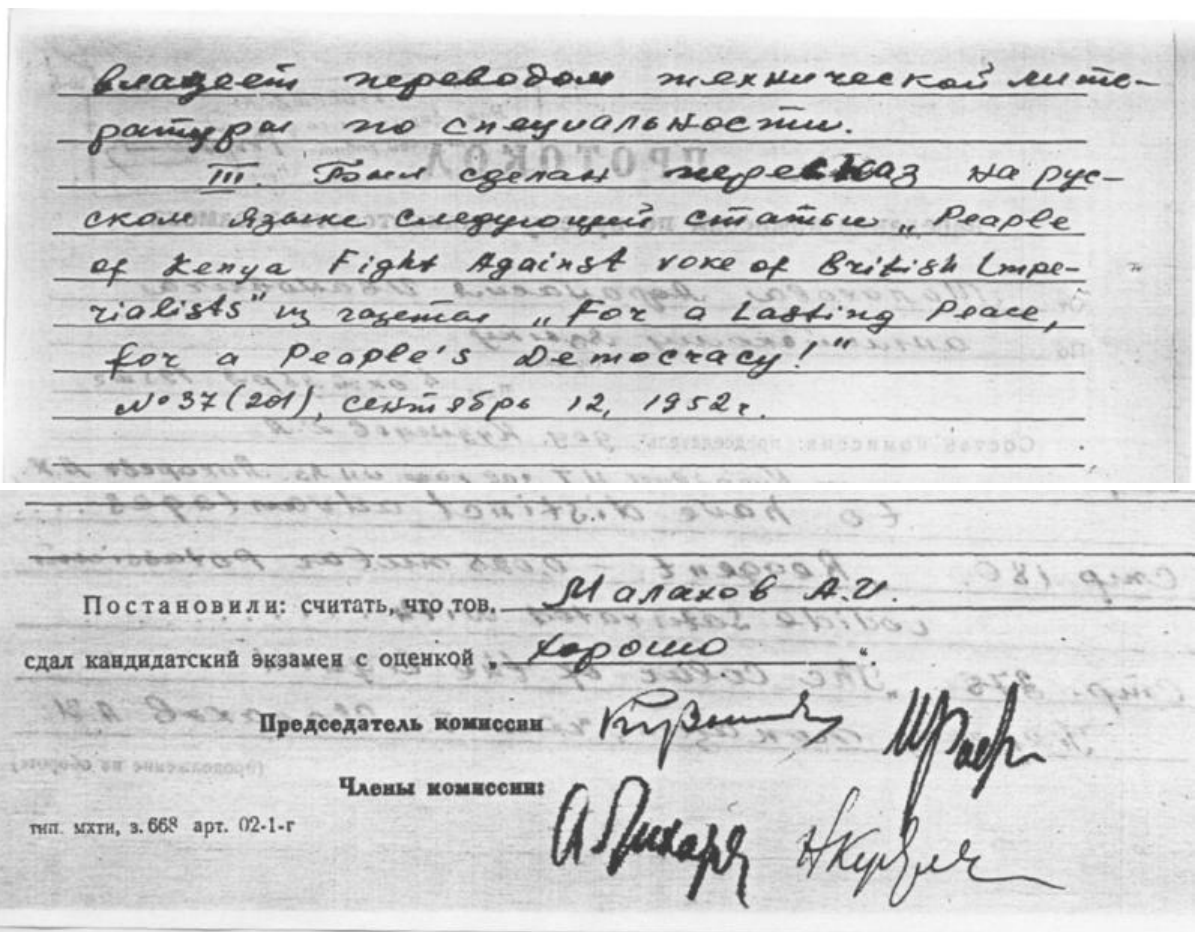 владеет переводом технической лите-
ратуры по специальности.
III. Был сделан пересказ на рус-
ском языке следующей статьи „People
of Kenya Fight Against Yoke of British Impe-
rialists" из газеты „For a Lasting Peace,
for a People's Democracy!"
№ 37 (201), сентябрь 12, 1952 г.
Постановили: считать, что тов. Малахов А.И.
сдал кандидатский экзамен с оценкой „хорошо“.
Председатель комиссии
Члены комиссии:
тип. мхти, з. 668 арт. 02-1-г